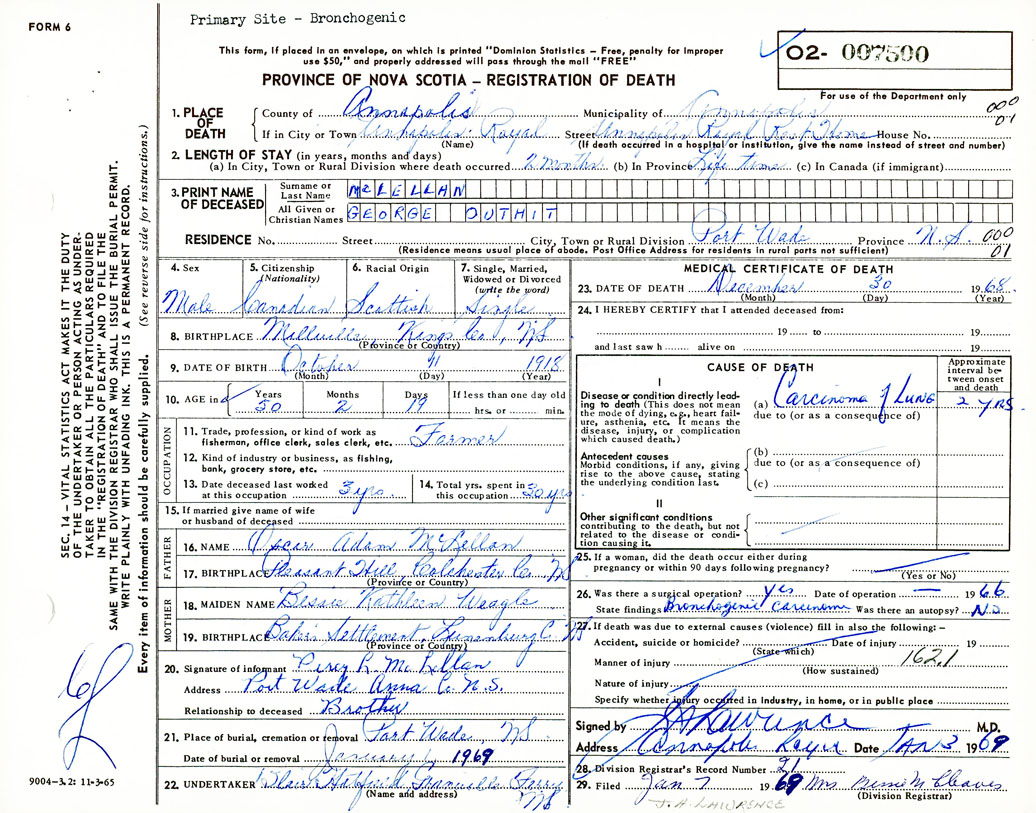 Primary Site - Bronchogenic
FORM 6
This form, if placed in an envelope, on which is printed "Dominion Statistics – Free, penalty for improper
use $50," and properly addressed will pass through the mail "FREE"
PROVINCE OF NOVA SCOTIA – REGISTRATION OF DEATH
O2- 007500
For use of the Department only
000
01
SEC. 14 – VITAL STATISTICS ACT MAKES IT THE DUTY
OF THE UNDERTAKER OR PERSON ACTING AS UNDER-
TAKER TO OBTAIN ALL THE PARTICULARS REQUIRED
IN THE "REGISTRATION OF DEATH" AND TO FILE THE
SAME WITH THE DIVISION REGISTRAR WHO SHALL ISSUE THE BURIAL PERMIT.
WRITE PLAINLY WITH UNFADING INK. THIS IS A PERMANENT RECORD.
Every item of information should be carefully supplied. (See reverse side for instructions.)
1. PLACE OF DEATH
County of Annapolis Municipality of Annapolis
If in City or Town Annapolis Royal Street Annapolis Royal Rest Home House No.
(Name) (If death occurred in a hospital or institution, give the name instead of street and number)
2. LENGTH OF STAY (in years, months and days)
(a) In City, Town or Rural Division where death occurred 2 months (b) In Province Life time (c) In Canada (if immigrant)
3. PRINT NAME OF DECEASED
Surname or Last Name McLELLAN
All Given or Christian Names GEORGE OUTHIT
RESIDENCE No. Street City, Town or Rural Division Port Wade Province N.S. 000
01
(Residence means usual place of abode. Post Office Address for residents in rural parts not sufficient)
4. Sex
Male
5. Citizenship (Nationality)
Canadian
6. Racial Origin
Scottish
7. Single, Married, Widowed or Divorced (write the word)
Single
8. BIRTHPLACE Millville, Kings Co., NS
(Province or Country)
9. DATE OF BIRTH October 11 1918
(Month) (Day) (Year)
10. AGE in Years Months Days If less than one day old
50 2 19 hrs. or min.
OCCUPATION
11. Trade, profession, or kind of work as
fisherman, office clerk, sales clerk, etc. Farmer
12. Kind of industry or business, as fishing,
bank, grocery store, etc.
13. Date deceased last worked
at this occupation 3 yrs
14. Total yrs. spent in
this occupation 30 yrs
15. If married give name of wife
or husband of deceased
FATHER
16. NAME Oscar Adam McLellan
17. BIRTHPLACE Pleasant Hill, Colchester Co., NS
(Province or Country)
MOTHER
18. MAIDEN NAME Bessie Kathleen Weagle
19. BIRTHPLACE Baker Settlement, Lunenburg C. NS
(Province or Country)
20. Signature of informant Percy R. McLellan
Address Port Wade Anna Co N.S.
Relationship to deceased Brother
21. Place of burial, cremation or removal Port Wade, NS
Date of burial or removal January 1969
22. UNDERTAKER Granville Ferry
NS
(Name and address)
9004-3.2: 11-3-65
MEDICAL CERTIFICATE OF DEATH
23. DATE OF DEATH December 30 1968
(Month) (Day) (Year)
24. I HEREBY CERTIFY that I attended deceased from:
19 to 19
and last saw h alive on 19
CAUSE OF DEATH
Approximate interval between onset and death
I
Disease or condition directly leading to death (This does not mean the mode of dying, e.g., heart failure, asthenia, etc. It means the disease, injury, or complication which caused death.)
(a) Carcinoma of Lung 2 yrs.
due to (or as a consequence of)
Antecedent causes
Morbid conditions, if any, giving rise to the above cause, stating the underlying condition last.
(b)
due to (or as a consequence of)
(c)
II
Other significant conditions
contributing to the death, but not related to the disease or condition causing it.
25. If a woman, did the death occur either during
pregnancy or within 90 days following pregnancy?
(Yes or No)
26. Was there a surgical operation? yes Date of operation — 1966
State findings Bronchogenic carcinoma Was there an autopsy? No
27. If death was due to external causes (violence) fill in also the following: –
Accident, suicide or homicide? Date of injury 19
(State which)
Manner of injury 162.1
(How sustained)
Nature of injury
Specify whether injury occurred in Industry, in home, or in public place
Signed by J A Lawrence M.D.
Address Annapolis Royal Date Jan 3 1969
28. Division Registrar's Record Number 21
29. Filed Jan 7 1969 Mrs
(Division Registrar)
J. A. LAWRENCE